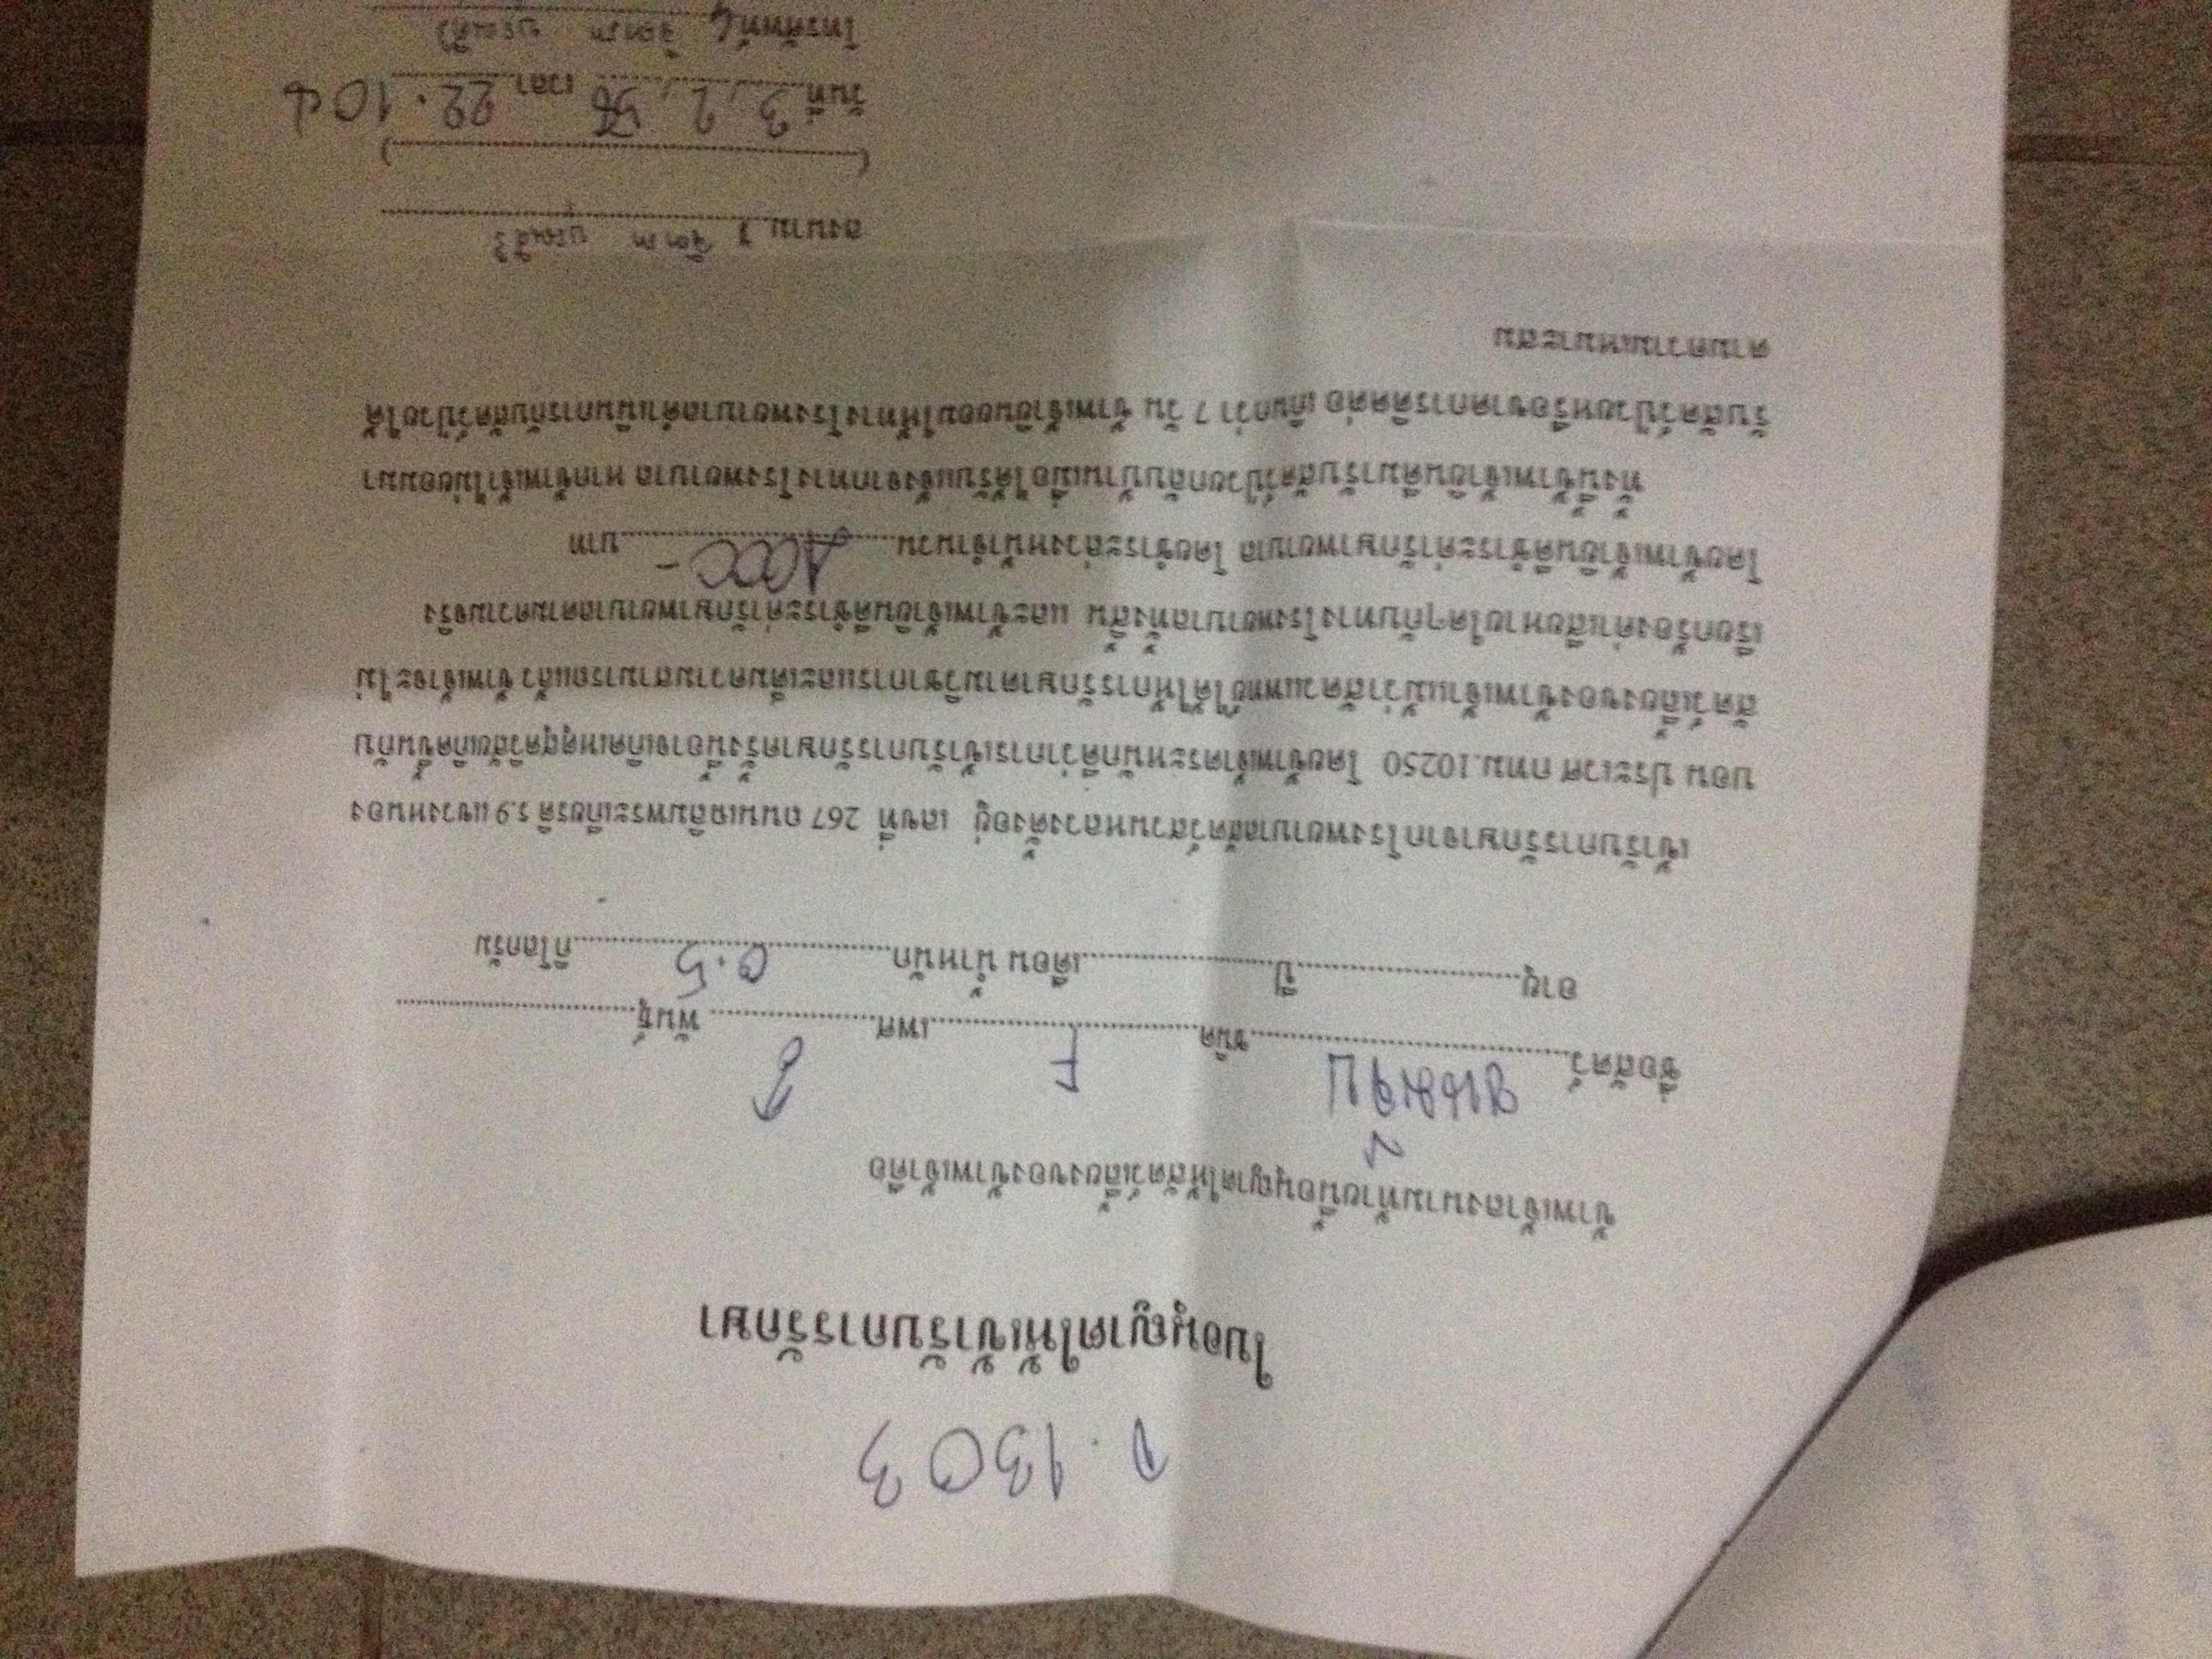 ก. 1303
ใบอนุญาตให้เข้ารับการรักษา
ข้าพเจ้าลงนามท้ายนี้อนุญาตให้สัตว์เลี้ยงของข้าพเจ้าคือ
ชื่อสัตว์ ชนิด F เพศ พันธุ์
อายุ ปี เดือน น้ำหนัก 0.5 กิโลกรัม
เข้ารับการรักษาจากโรงพยาบาลสัตว์สวนหลวงตั้งอยู่ เลขที่ 267 ถนนเฉลิมพระเกียรติ ร.9 แขวงหนอง
บอน ประเวศ กทม.10250 โดยข้าพเจ้าตระหนักดีว่าการเข้ารับการรักษาครั้งนี้อาจเกิดเหตุสุดวิสัยเกิดขึ้นกับ
สัตว์เลี้ยงของข้าพเจ้าแม้ว่าสัตวแพทย์ได้ให้การรักษาตามวิชาการและเต็มความสามารถแล้ว ข้าพเจ้าจะไม่
เรียกร้องค่าเสียหายใดๆกับทางโรงพยาบาลทั้งสิ้น และข้าพเจ้ายินดีชำระค่ารักษาพยาบาลตามความจริง
โดยข้าพเจ้ายินดีชำระค่ารักษาพยาบาล โดยชำระล่วงหน้าจำนวน 1000 - บาท
ทั้งนี้ข้าพเจ้ายินดีมารับสัตว์ป่วยกลับบ้านเมื่อได้รับแจ้งจากทางโรงพยาบาล หากข้าพเจ้าไม่ยอมมา
รับสัตว์ป่วยหรือขาดการติดต่อ เกินกว่า 7 วัน ข้าพเจ้ายินยอมให้ทางโรงพยาบาลดำเนินการกับสัตว์ป่วยได้
ตามความเหมาะสม
ลงนาม
( )
วันที่ 3, 2, 56 เวลา 22.10 น
โทรศัพท์